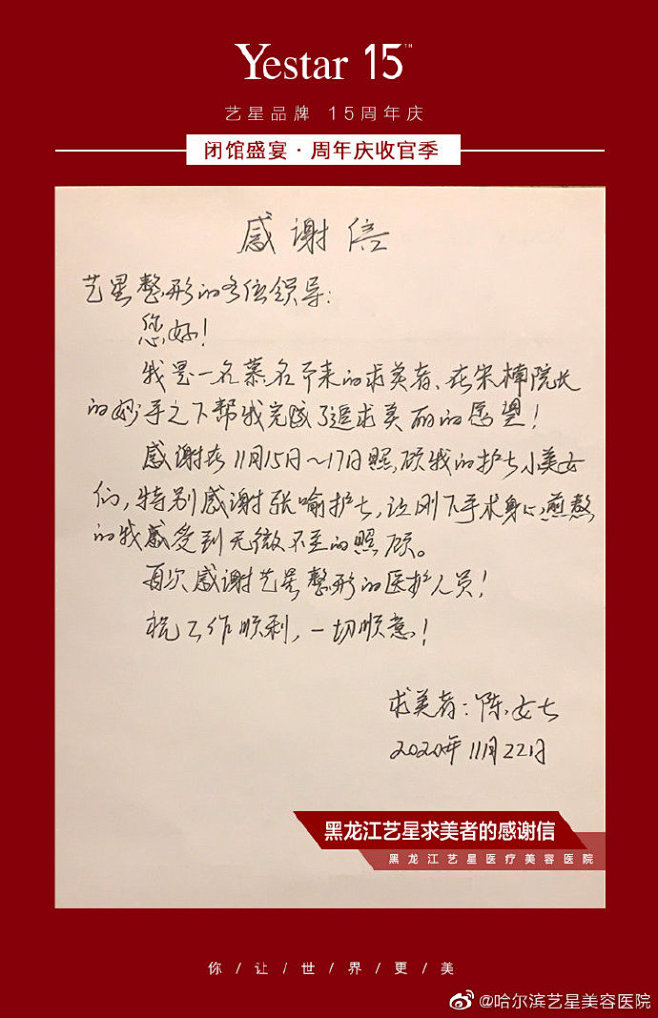 Yestar 15™
艺星品牌 15周年庆
闭馆盛宴·周年庆收官季
感谢信
艺星整形的各位领导：
您好！
我是一名慕名而来的求美者、在宋楠院长
的妙手之下帮我完成了追求美丽的愿望！
感谢在11月15日~17日照顾我的护士小美女
们，特别感谢张喻护士，让刚下手术身心煎熬
的我感受到无微不至的照顾。
再次感谢艺星整形的医护人员！
祝工作顺利，一切顺意！
求美者：陈女士
2020年11月22日
黑龙江艺星求美者的感谢信
黑龙江艺星医疗美容医院
你/让/世/界/更/美
@哈尔滨艺星美容医院